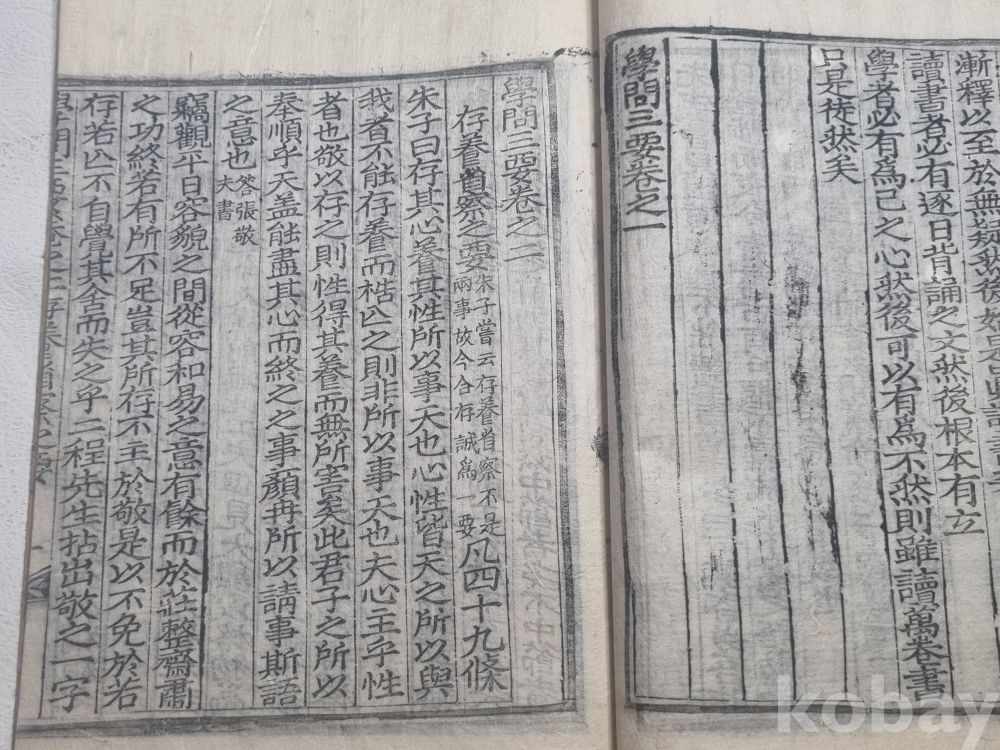 漸釋以至於無疑然後
讀書者必有逐日背誦之文然後根本有立
學者必有爲己之心然後可以有爲不然則雖讀萬卷書
只是徒然矣
學問三要卷之一
學問三要卷之二
存養省察之要 朱子嘗云存養省察不是兩事故今合存誠爲一要 凡四十九條
朱子曰存其心養其性所以事天也心性皆天之所以與
我者不能存養而梏亡之則非所以事天也夫心主乎性
者也敬以存之則性得其養而無所害矣此君子之所以
奉順乎天盖能盡其心而終之之事顏冉所以請事斯語
之意也 答張敬夫書
竊觀平日容貌之間從容和易之意有餘而於莊整齋肅
之功終若有所不足豈其所存不主於敬是以不免於若
存若亡不自覺其舍而失之乎二程先生拈出敬之一字
kobay